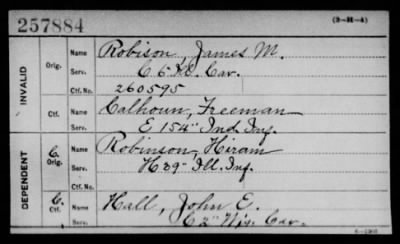 257884
(3-H-4)
INVALID
Orig.
Name Robison, James M.
Serv. C 6 Cav.
Ctf. No. 260595
Ctf.
Name Calhoun, Freeman
Serv. E 154" Ind. Inf.
DEPENDENT
C.
Orig.
Name Robinson, Hiram
Serv. H 39" Ill. Inf.
C.
Ctf.
Name Hall, John E.
Serv. C 2" Wis. Cav.